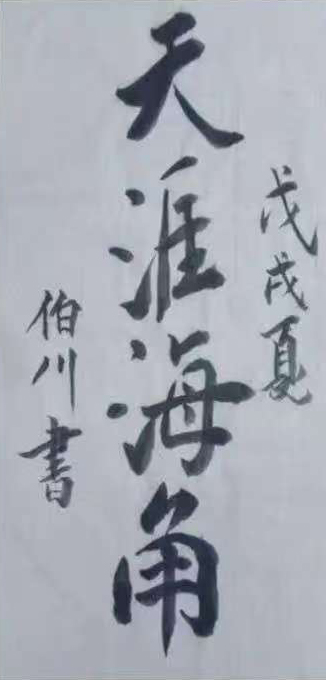 戊戌夏
天涯海角
伯川書